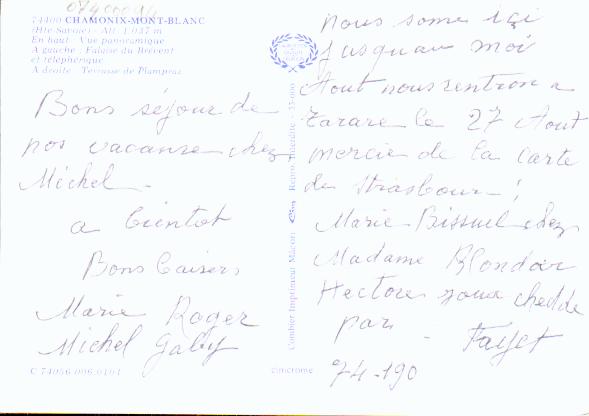 07400094
74400 CHAMONIX-MONT-BLANC
(Hte-Savoie) - Alt. 1 037 m
En haut : Vue panoramique
A gauche : Falaise du Brévent
et téléphérique
A droite : Terrasse de Planpraz
Bons séjour de
nos vacanse chez
Michel -
a bientot
Bons baisers
Marie Roger
Michel Gaby
C 74056 006 0101
Combier Imprimeur Mâcon Cim Repro. Interdite - 35-000
cimcrome
nous some içi
jusquau moi
Aout nous rentron a
Tarare le 27 Aout
mercie de la carte
de Strasbour - !
Marie Bissuel chez
Madame Blondar
Hectore chedde
par - Fayet
74-190